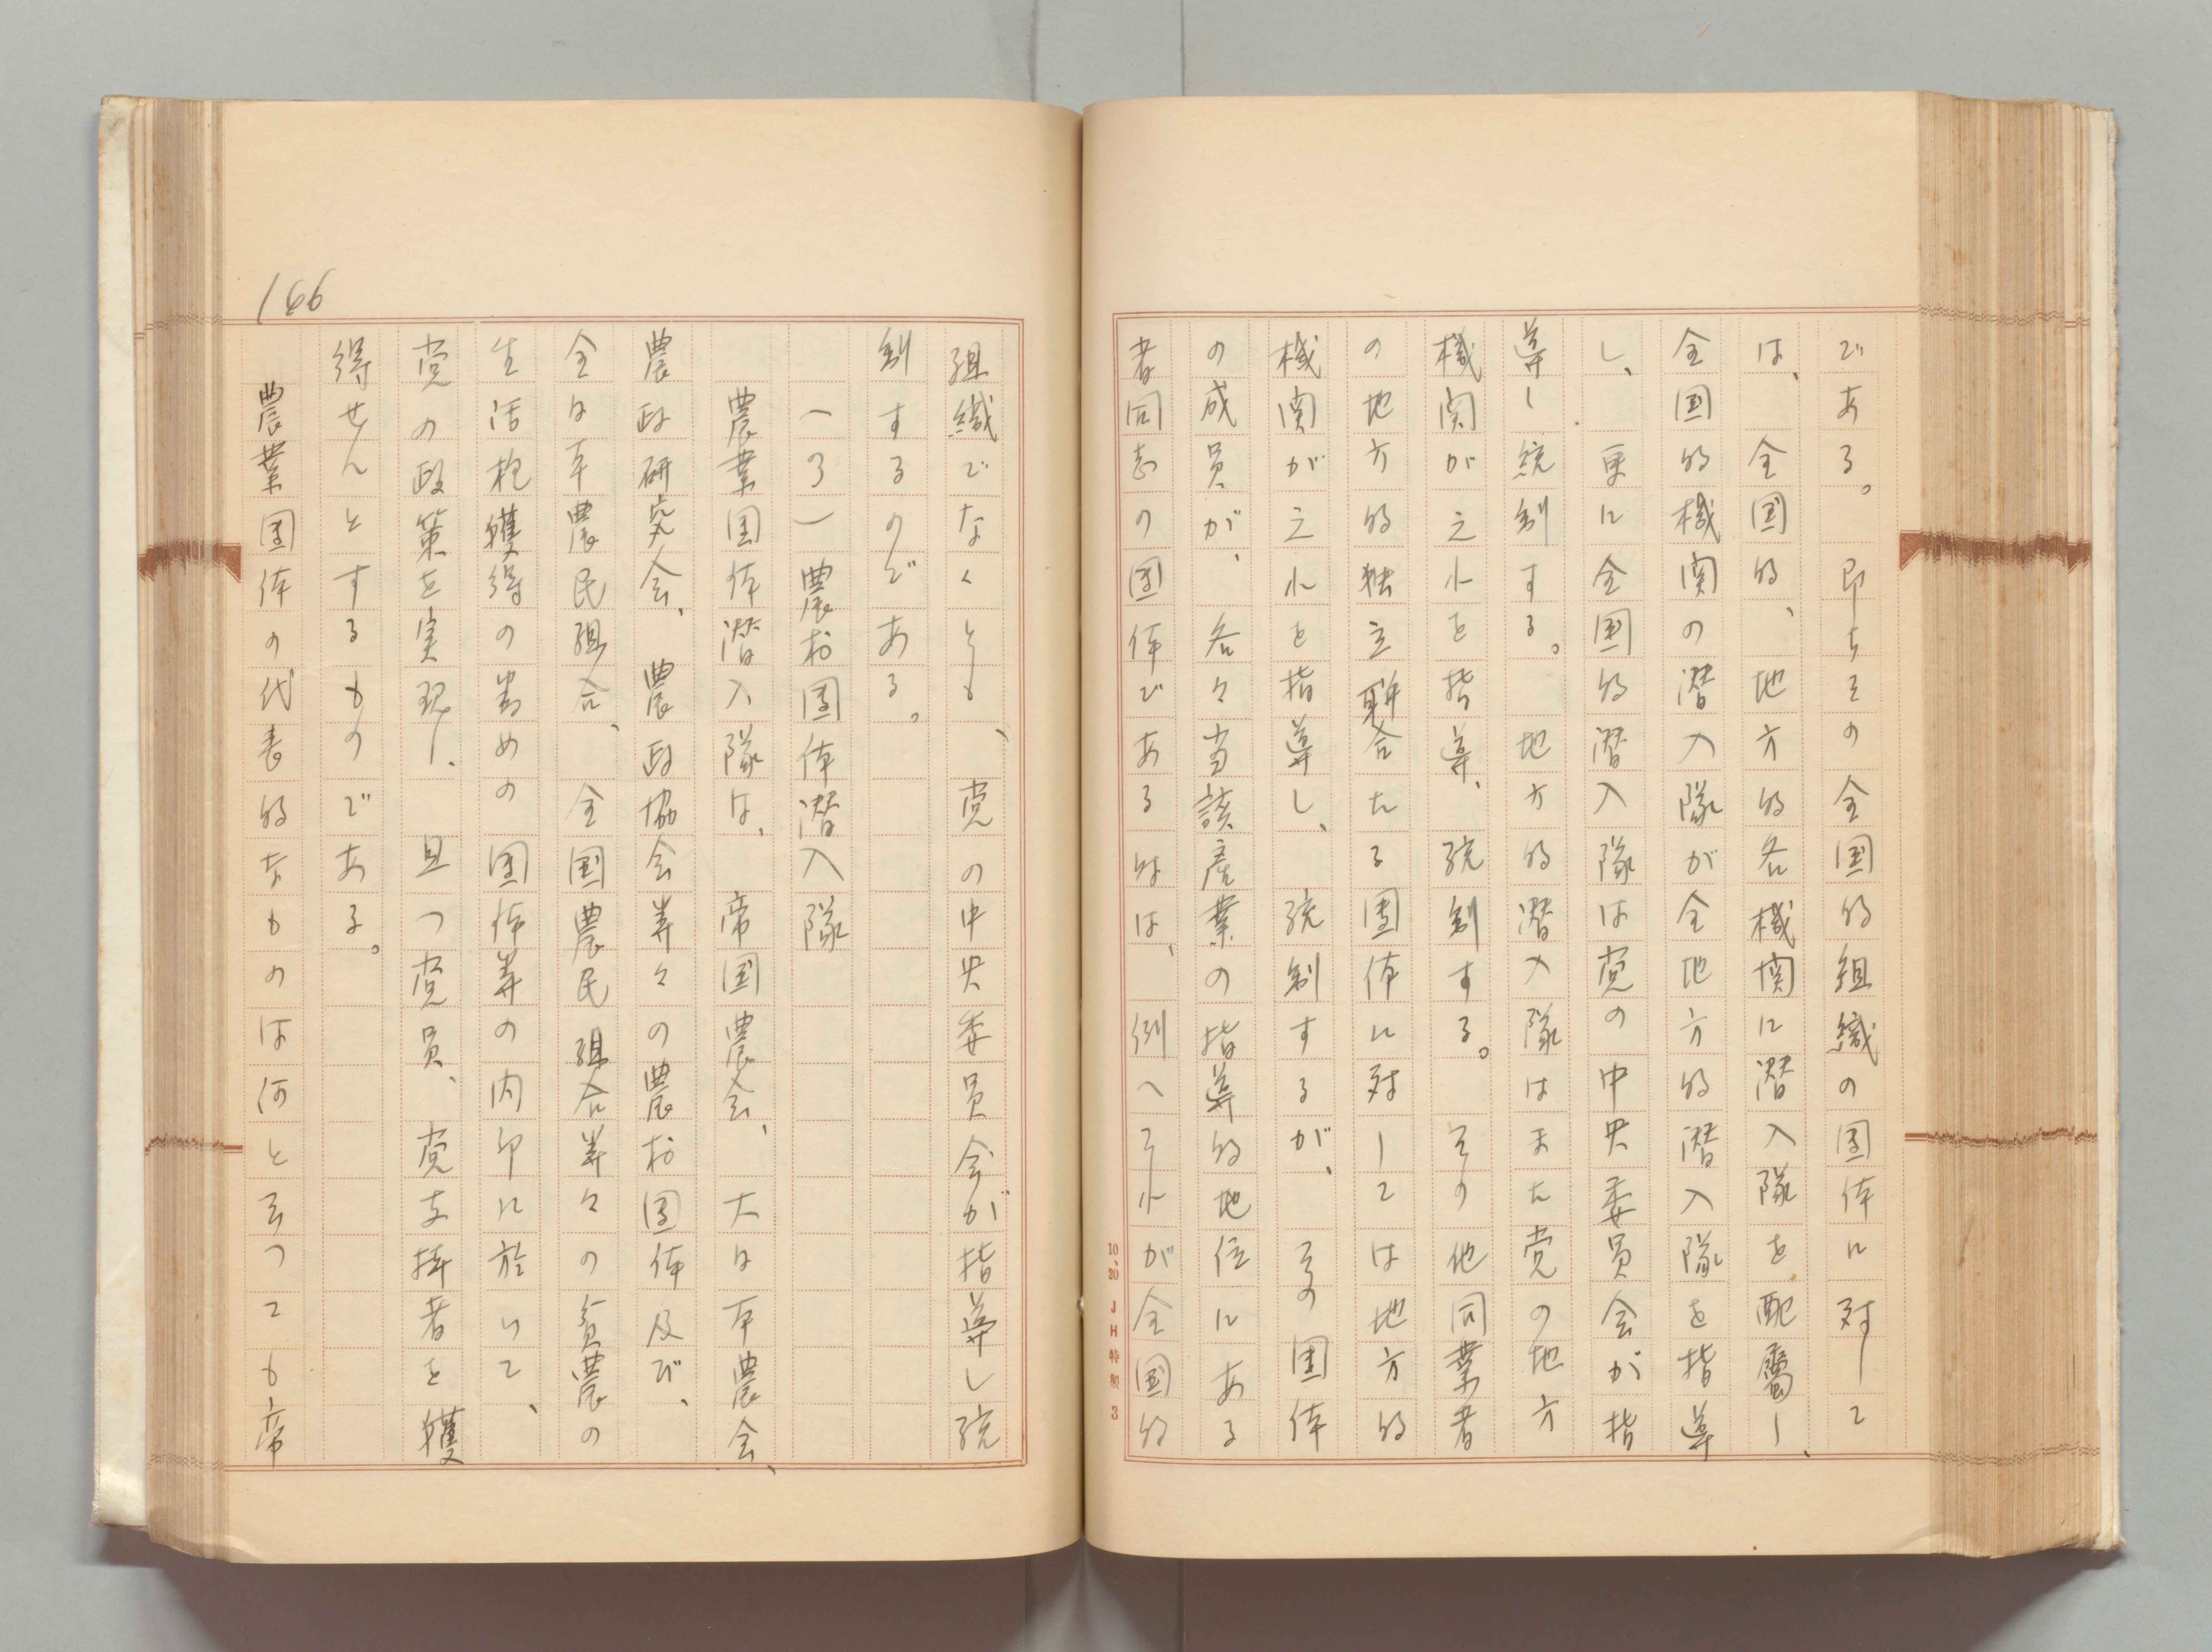 である。即ちその全国的組織の団体に対して
は、全国的、地方的各機関に潜入隊を配属し、
全国的機関の潜入隊が全地方的潜入隊を指導
し、更に全国的潜入隊は党の中央委員会が指
導し、統制する。地方的潜入隊はまた党の地方
機関が之れを指導、統制する。その他同業者
の地方的独立聯合たる団体に対しては地方的
機関が之れを指導し、統制するが、その団体
の成員が、各々当該産業の指導的地位にある
者同志の団体である時は、例へそれが全国的
10、20 JH特製 3
組織でなくとも、党の中央委員会が指導し統
制するのである。
(ろ) 農村団体潜入隊
農業団体潜入隊は、帝国農会、大日本農会、
農政研究会、農政協会等々の農村団体及び、
全日本農民組合、全国農民組合等々の貧農の
生活権獲得の為めの団体等の内部に於いて、
党の政策を実現し、且つ党員、党支持者を獲
得せんとするものである。
農業団体の代表的なものは何と云つても帝
166